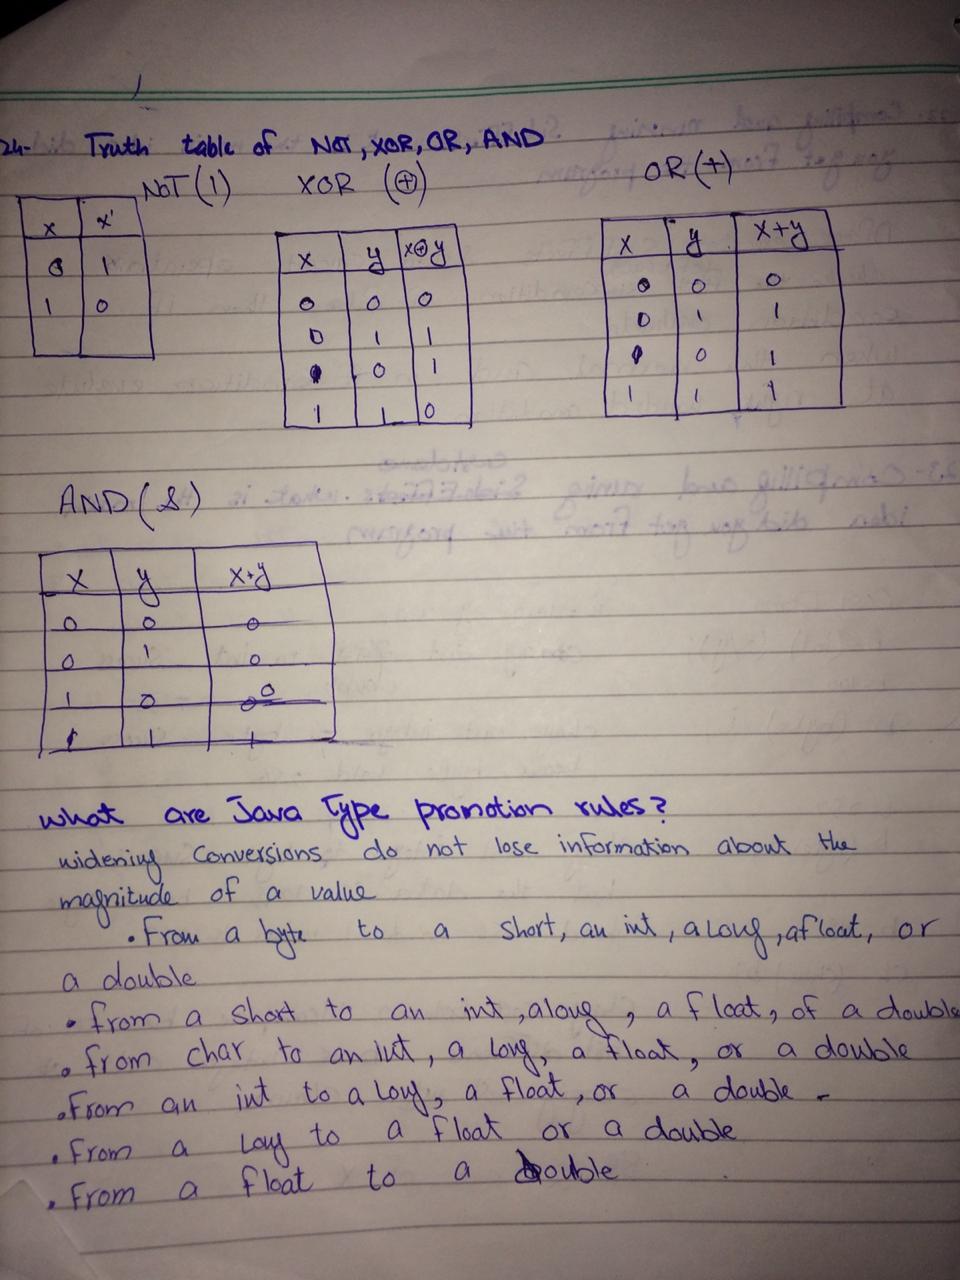 24- Truth table of NOT, XOR, OR, AND
NOT (1) XOR (⊕) OR (+)
x x'
0 1
1 0
x y x⊕y
0 0 0
0 1 1
1 0 1
1 1 0
x y x+y
0 0 0
0 1 1
1 0 1
1 1 1
AND (&)
x y x+y
0 0 0
0 1 0
1 0 0
1 1 1
what are Java Type promotion rules?
widening Conversions do not lose information about the
magnitude of a value
• From a byte to a short, an int, a long, a float, or
a double
• from a short to an int, a long, a float, of a double
• from char to an int, a long, a float, or a double
• From an int to a long, a float, or a double -
• From a Long to a float or a double
• From a float to a double